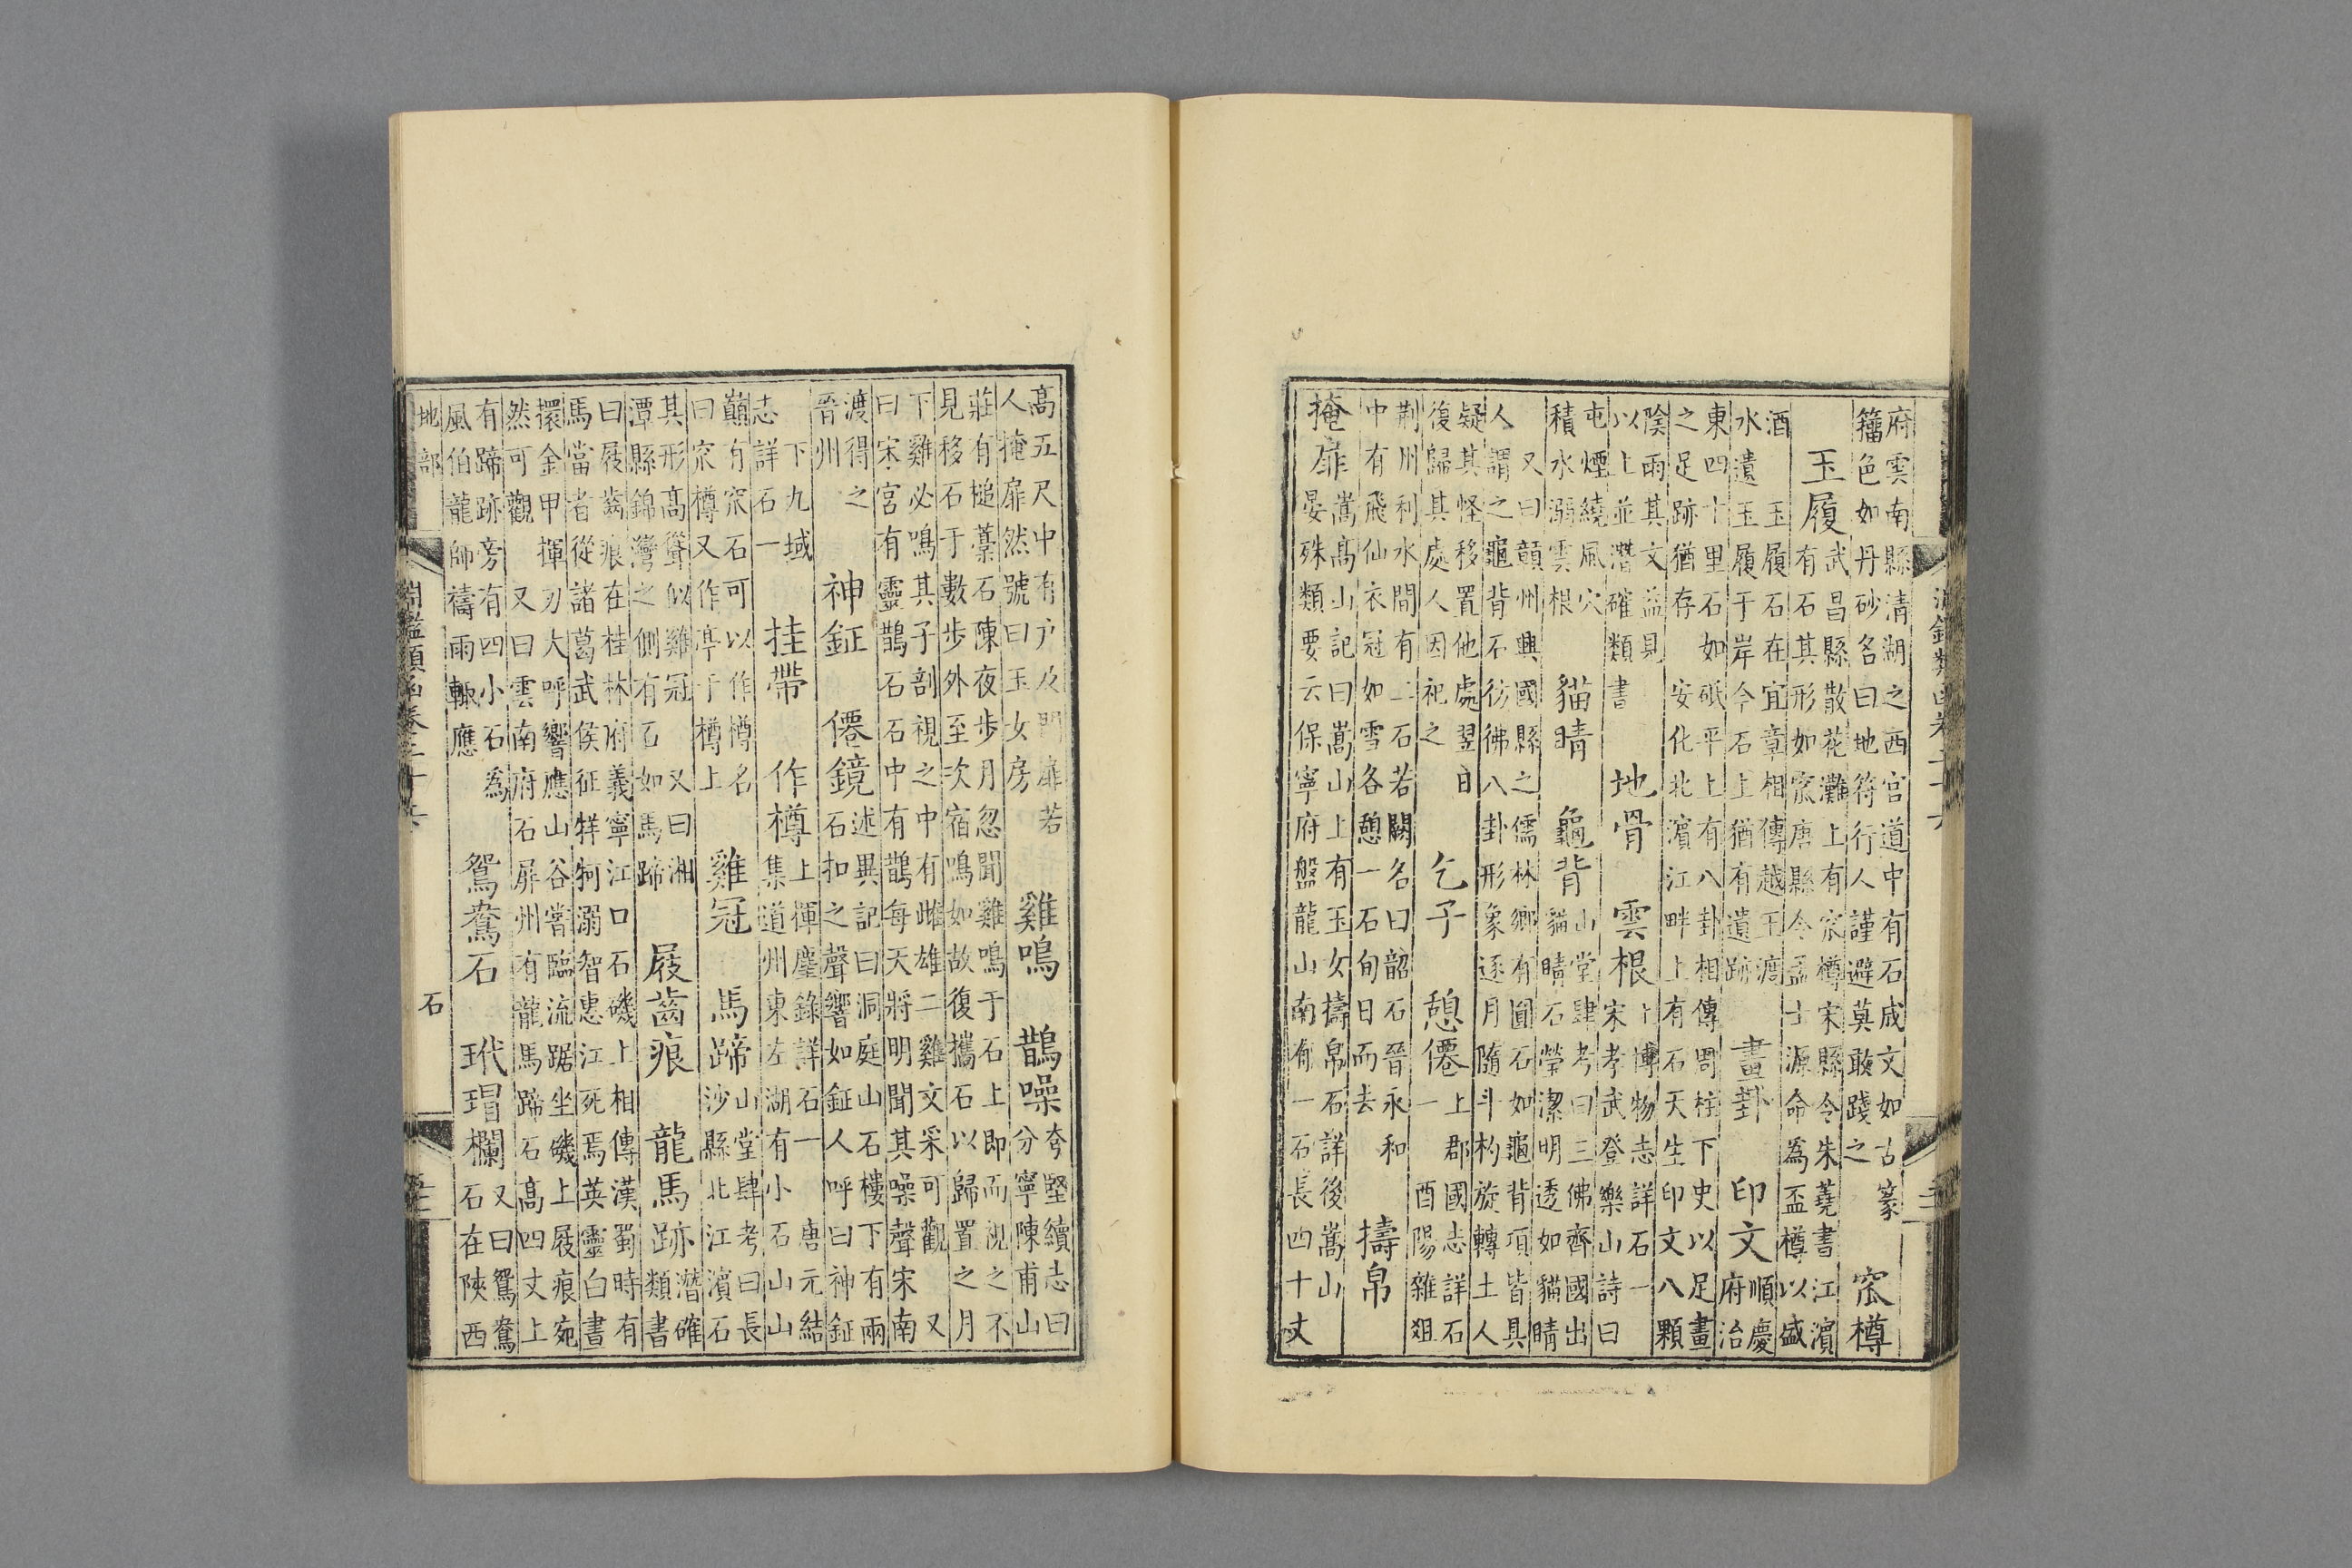 府雲南縣清湖之西宮道中有石成文如古篆
籀色如丹砂名曰地符行人謹避莫敢踐之
窊樽
武昌縣散花灘上有窊樽宋縣令朱蕘書江濱
玉履
有石其形如窊唐縣令孟士源命為盃樽以盛
酒
玉履石在宜章相傳越王渡
水遺玉履于岸今石上猶有遺跡
畫卦
印文
順慶
府治
東四十里石如砥平上有八卦相傳周柱下史以足畫
之足跡猶存
安化北濱江畔上有石天生印文八顆
陰雨其文益見
以上並潛確類書
地骨
雲根
上博物志詳石一
宋孝武登樂山詩曰
屯煙繞風穴
積水溺雲根
貓睛
龜背
山堂肆考曰三佛齊國出
貓睛石瑩潔明透如貓睛
又曰顗州興國縣之儒林鄉有圓石如龜背項皆具
人謂之龜背石彷彿八卦形象逐月隨斗杓旋轉土人
疑其怪移置他處翌日
復歸其處人因祀之
乞子
憩僊
上郡國志詳石
一 酉陽雜俎
荊州利水間有二石若闕名曰韶石晉永和
中有飛仙衣冠如雪各憩一石旬日而去
擣帛
掩扉
嵩高山記曰嵩山上有玉女擣帛石詳後嵩山
晏殊類要云保寧府盤龍山南有一石長四十丈
高五尺中有戶及門扉若
人掩扉然號曰玉女房
雞鳴
鵲噪
夸堅續志曰
分寧陳甫山
莊有槌藁石陳夜步月忽聞雞鳴于石上即而視之不
見移石于數步外至次宿鳴如故復攜石以歸置之月
下雞必鳴其子剖視之中有雌雄二雞文采可觀 又
曰宋宮有靈鵲石石中有鵲每天將明聞其噪聲宋南
渡得之
晉州
神鉦
僊鏡
述異記曰洞庭山石樓下有兩
石扣之聲響如鉦人呼曰神鉦
下九域
志詳石一
挂帶
作樽
上揮麈錄詳石一 唐元結
集道州東左湖有小石山山
巔有窊石可以作樽名
曰窊樽又作亭于樽上
雞冠
馬蹄
山堂肆考曰長
沙縣北江濱石
其形高聳似雞冠 又曰湘
潭縣錦灣之側有石如馬蹄
屐齒痕
龍馬跡
潛確
類書
曰屐齒痕在桂林府義寧江口石磯上相傳漢蜀時有
馬當者從諸葛武侯征牂牁溺智惠江死焉英靈白書
擐金甲揮刃大呼響應山谷嘗臨流踞坐磯上屐痕宛
然可觀 又曰雲南府石屏州有龍馬蹄石高四丈上
有蹄跡旁有四小石為
風伯龍師禱雨輒應
鴛鴦石
玳瑁欄
又曰鴛鴦
石在陝西
地部
石
淵鑑類函卷二十六